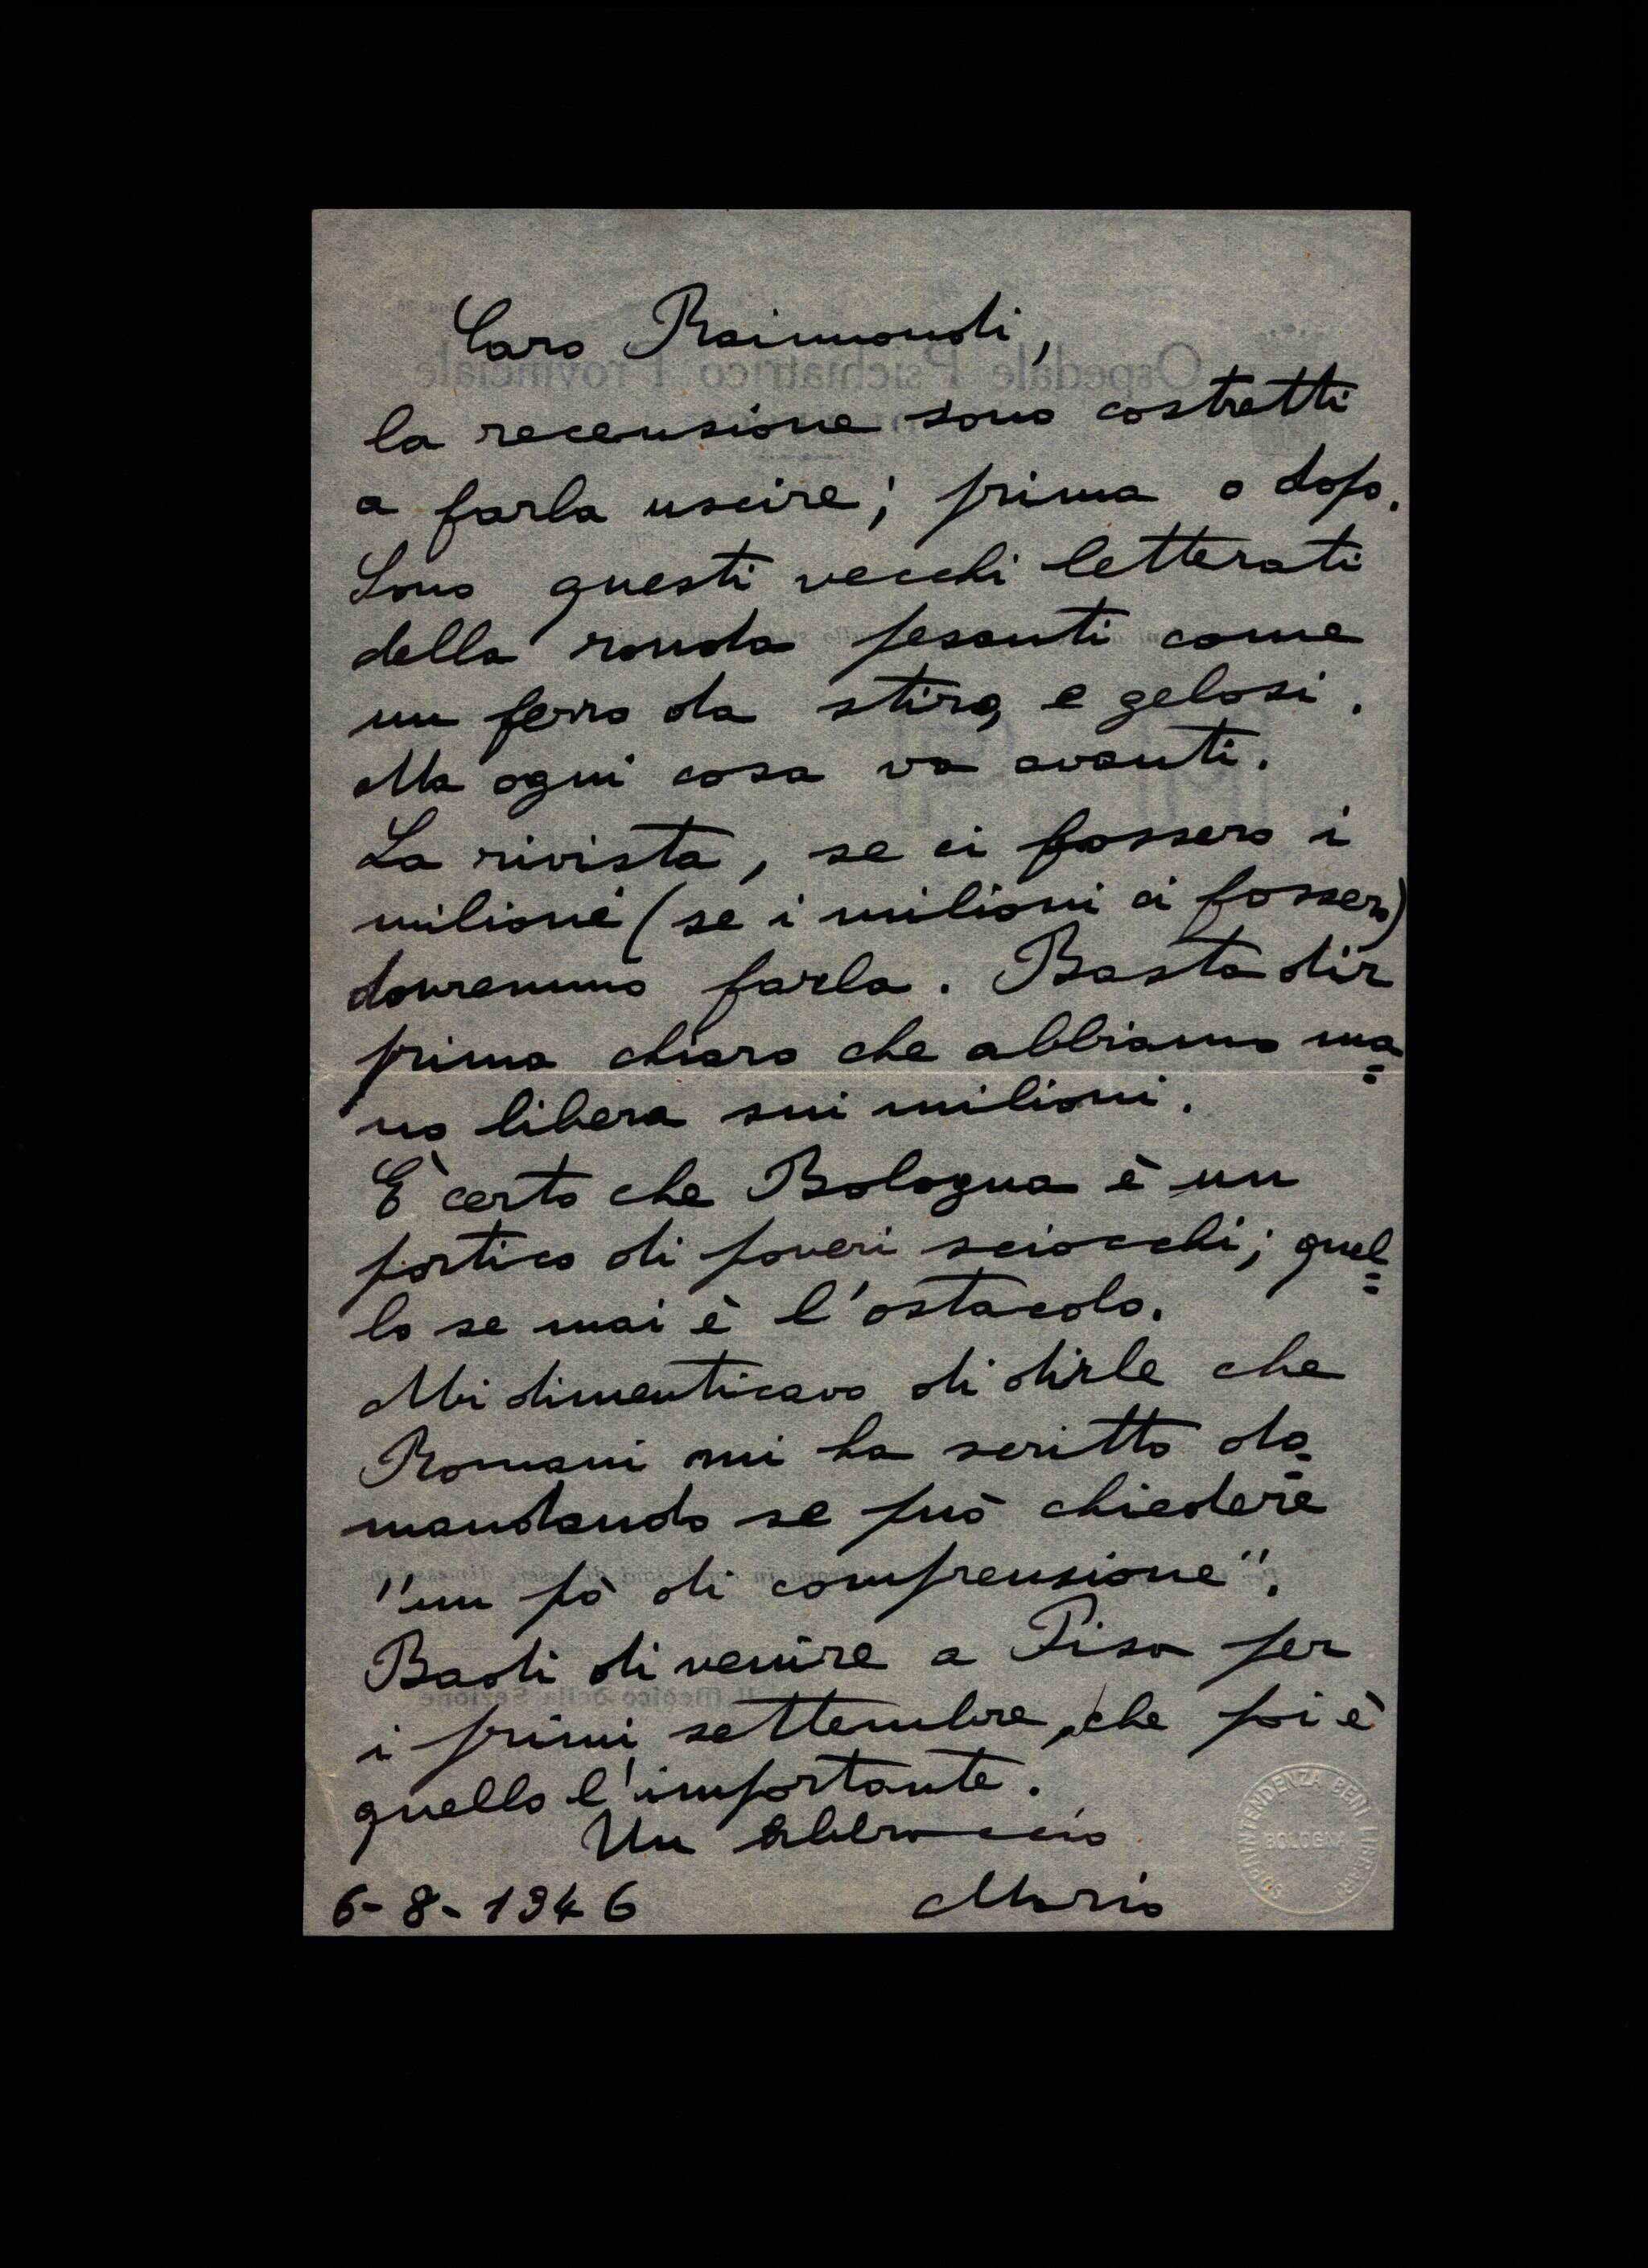 Caro Raimondi,
la recensione sono costretti
a farla uscire; prima o dopo.
Sono questi vecchi letterati
della ronda pesanti come
un ferro da stiro, e gelosi.
Ma ogni cosa va avanti.
La rivista, se ci fossero i
milioni (se i milioni ci fossero)
dovremmo farla. Basta dir
prima chiaro che abbiamo ma=
no libera sui milioni.
È certo che Bologna è un
portico di poveri sciocchi; quel=
lo se mai è l'ostacolo.
Mi dimenticavo di dirle che
Romani mi ha scritto do=
mandando se può chiedere
"un pò di comprensione".
Badi di venire a Pisa per
i primi settembre, che poi è
quello l'importante.
Un abbraccio
6-8-1946 Mario
SOPRINTENDENZA BENI LIBRARI
BOLOGNA
Ospedale Psichiatrico Provinciale
Il Medico della Sezione